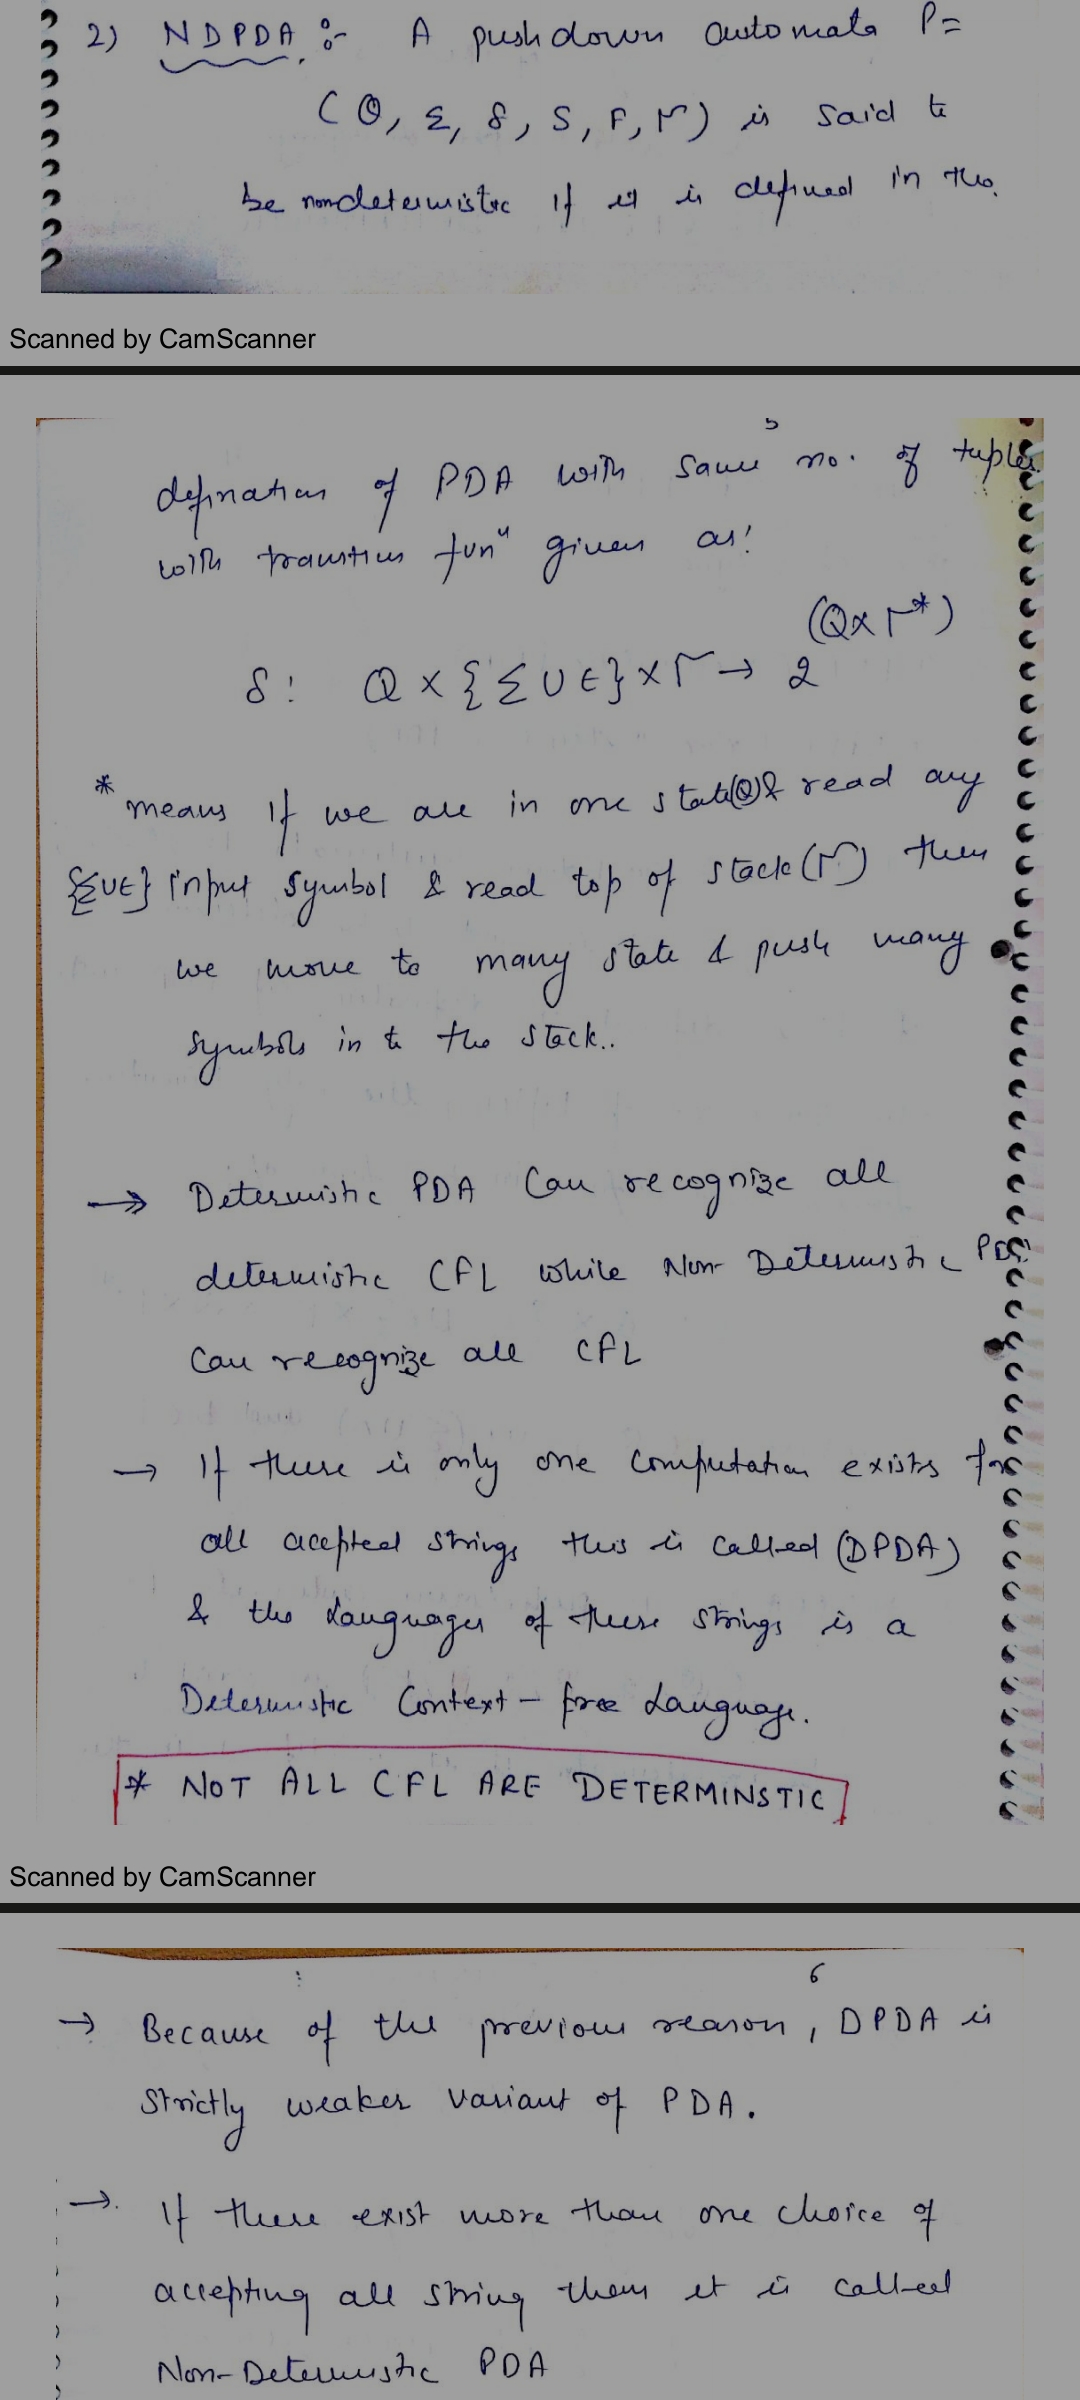 2) NDPDA :- A pushdown automata P=
(Q, Σ, δ, S, F, Γ) is said to
be nondetermistic if it is defined in the
Scanned by CamScanner
5
defination of PDA with same no. of tuples
with transition funⁿ given as!
(Q x Γ*)
δ: Q x {Σ U ε} x Γ → 2
* means if we are in one state(Q) & read any
{ΣUε} input symbol & read top of stack (Γ) then
we move to many state & push many
symbols in to the stack..
→ Determistic PDA Can recognize all
determistic CFL while Non-Determistic PDA
Can recognize all CFL
→ If there is only one computation exists for
all accepted strings this is called (DPDA)
& the languages of these strings is a
Determistic Context-free Language.
* NOT ALL CFL ARE DETERMINSTIC
Scanned by CamScanner
6
→ Because of the previous reason, DPDA is
strictly weaker variant of PDA.
→. If there exist more than one choice of
accepting all string then it is called
Non-Determistic PDA